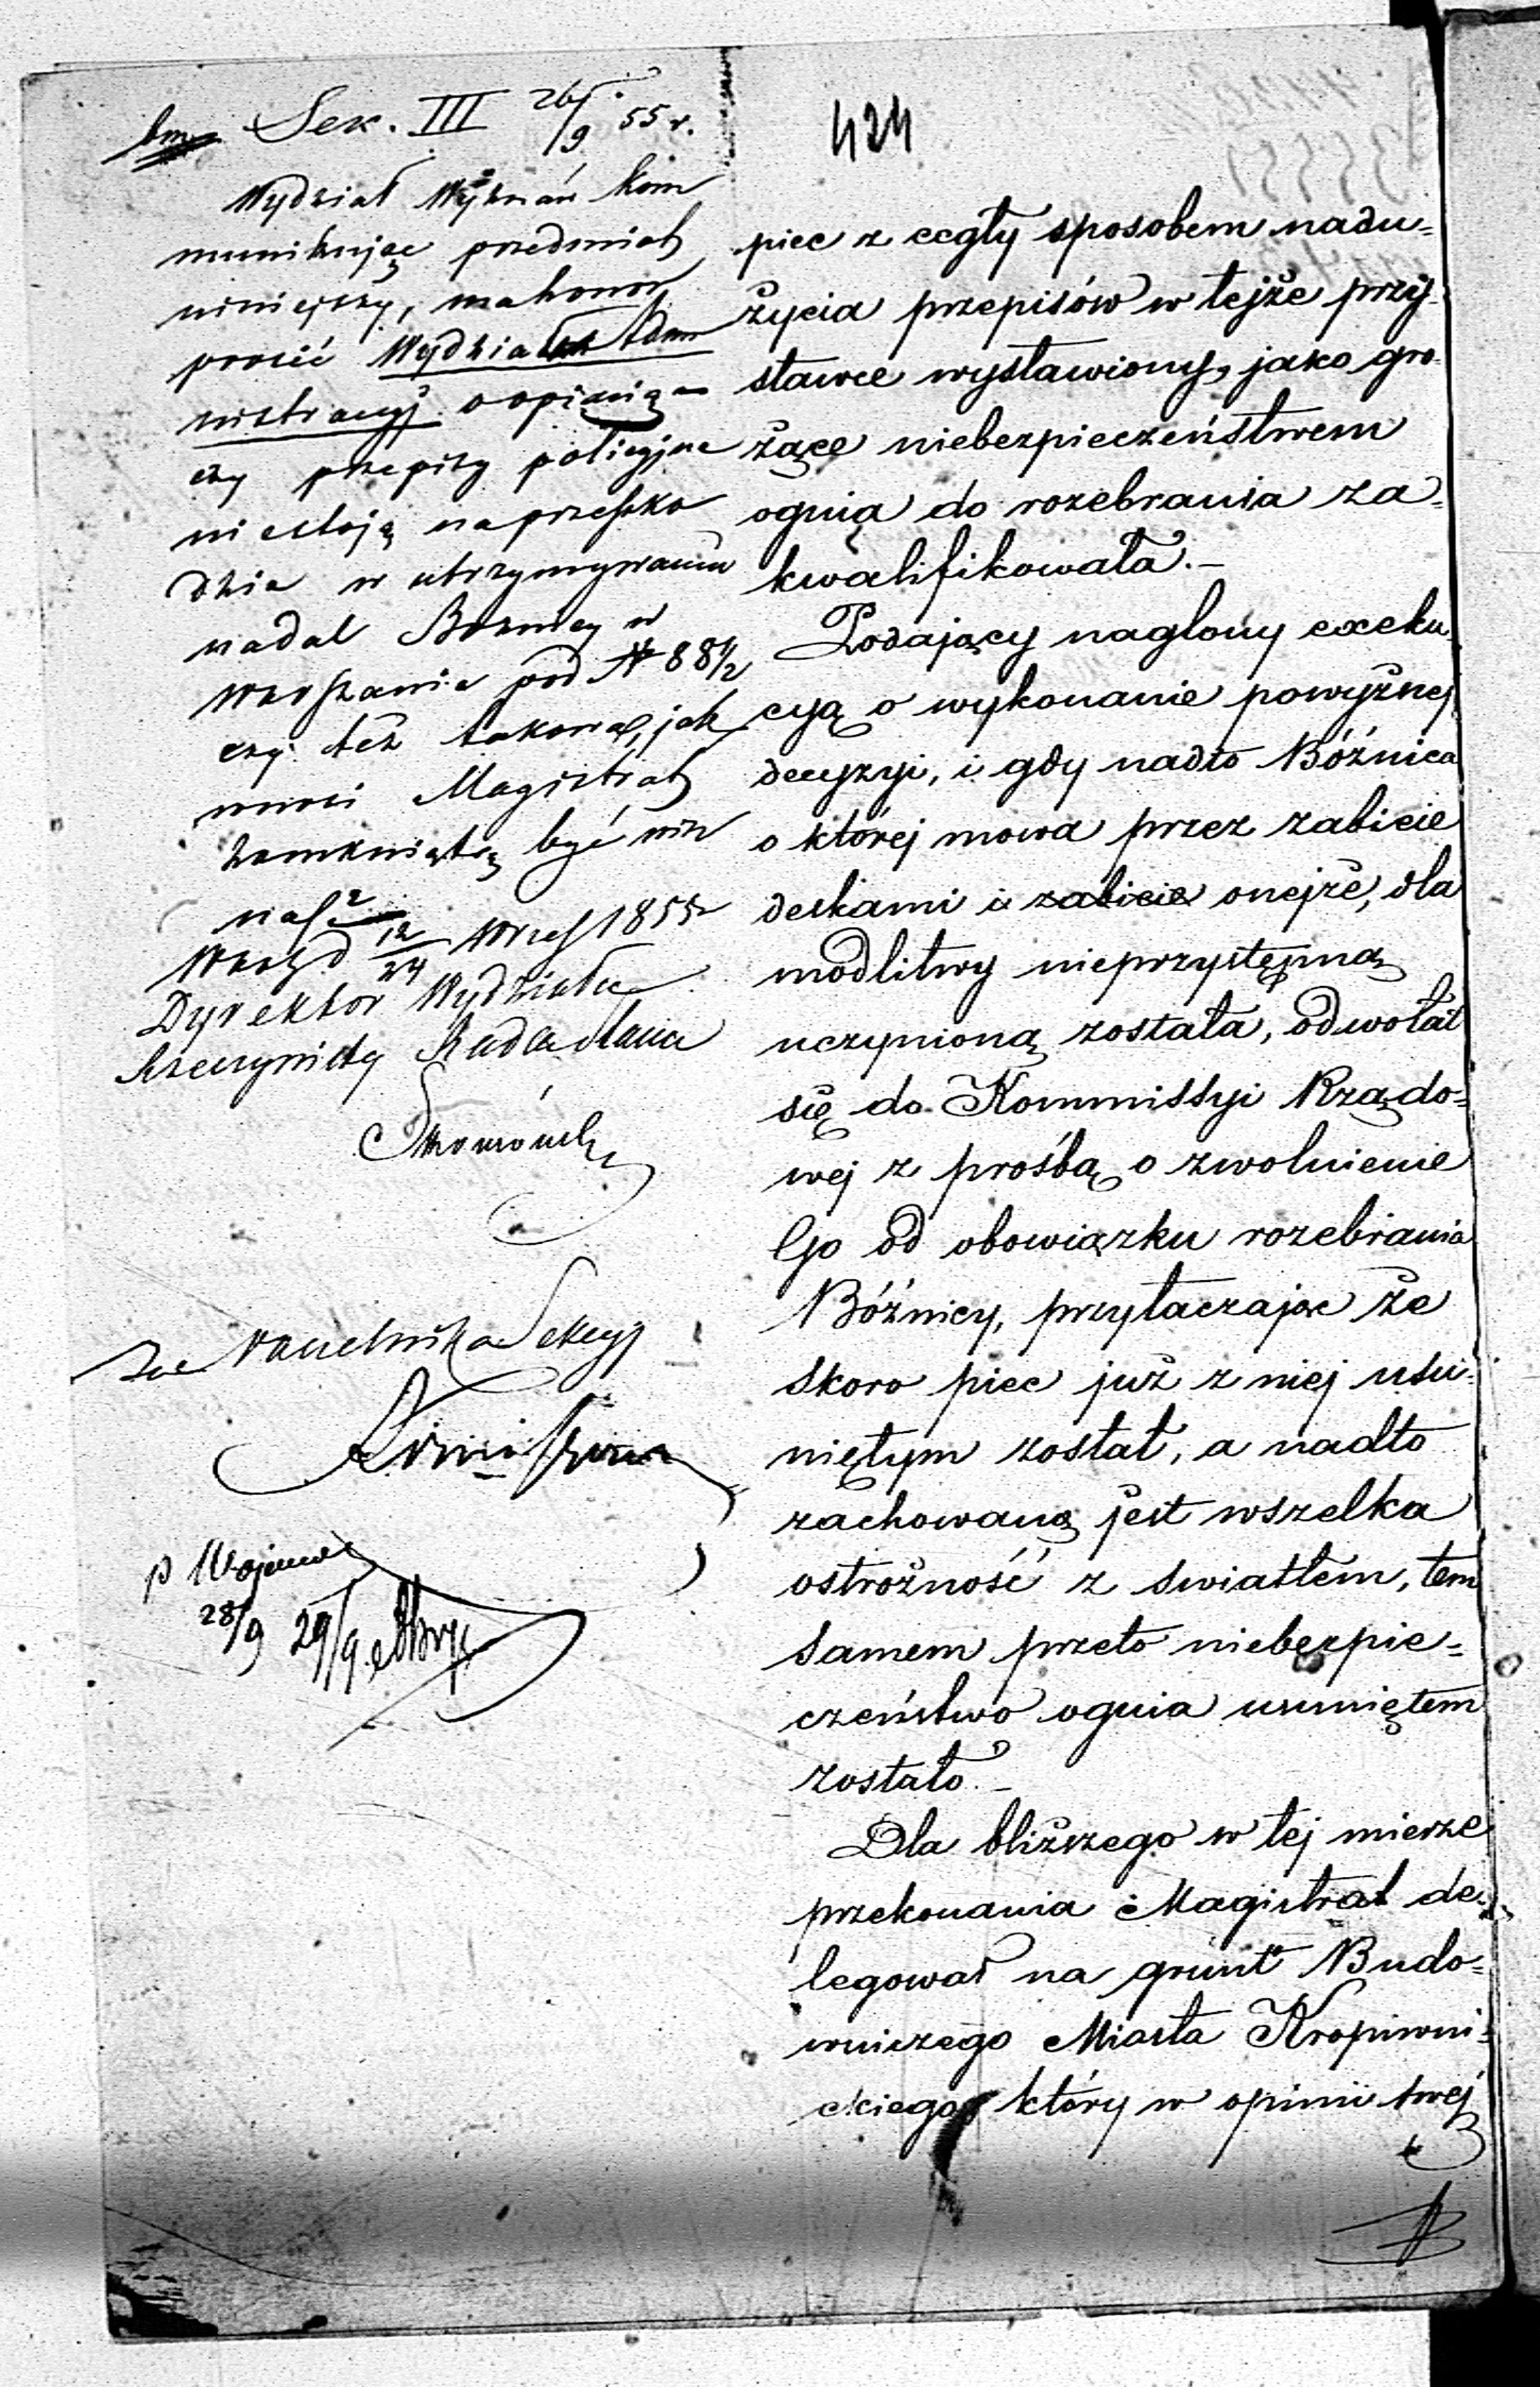 Sek. III 26/9 55 r.
Wydział Wyznań Kom
munikując przedmiot
niniejszy, ma honor
prosić Wydział Adm
nistracyj. o opinią
czy przepisy policyjne
nie stoją na przeszko
dzie w utrzymywaniu
nadal Boznicy w
Warszawie pod N 88½
czy też takowa, jak
wnosi Magistrat
zamkniętą być win
na?
Warsz d 12/24 Wrześ 1855 r
Dyrektor Wydziału
Rzeczywisty Radca Stanu
Za Naczelnika Sekcyj
28/9 29/9
424
piec z cegły sposobem nadu=
życia przepisów w tejże przy=
stawce wystawiony, jako gro
żące niebezpieczeństwem
ognia do rozebrania za=
kwalifikowała.–
Podający naglony exeku
cyą o wykonanie powyższej
decyzyi, i gdy nadto Bóźnica
o której mowa przez zabicie
deskami i zabicie onejże, dla
modlitwy nieprzystępną
uczynioną została, odwołał
się do Kommissyi Rządo=
wej z prośbą o zwolnienie
Go od obowiązku rozebrania
Bóźnicy, przytaczając że
skoro piec już z niej usu=
niętym został, a nadto
zachowaną jest wszelka
ostrożność z swiatłem, tem
samem przeto niebezpie=
czeństwo ognia usuniętem
zostało.–
Dla bliższego w tej mierze
przekonania Magistrat de=
legował na grunt Budo=
wniczego Miasta Kropiwni=
ckiego który w opinii swej